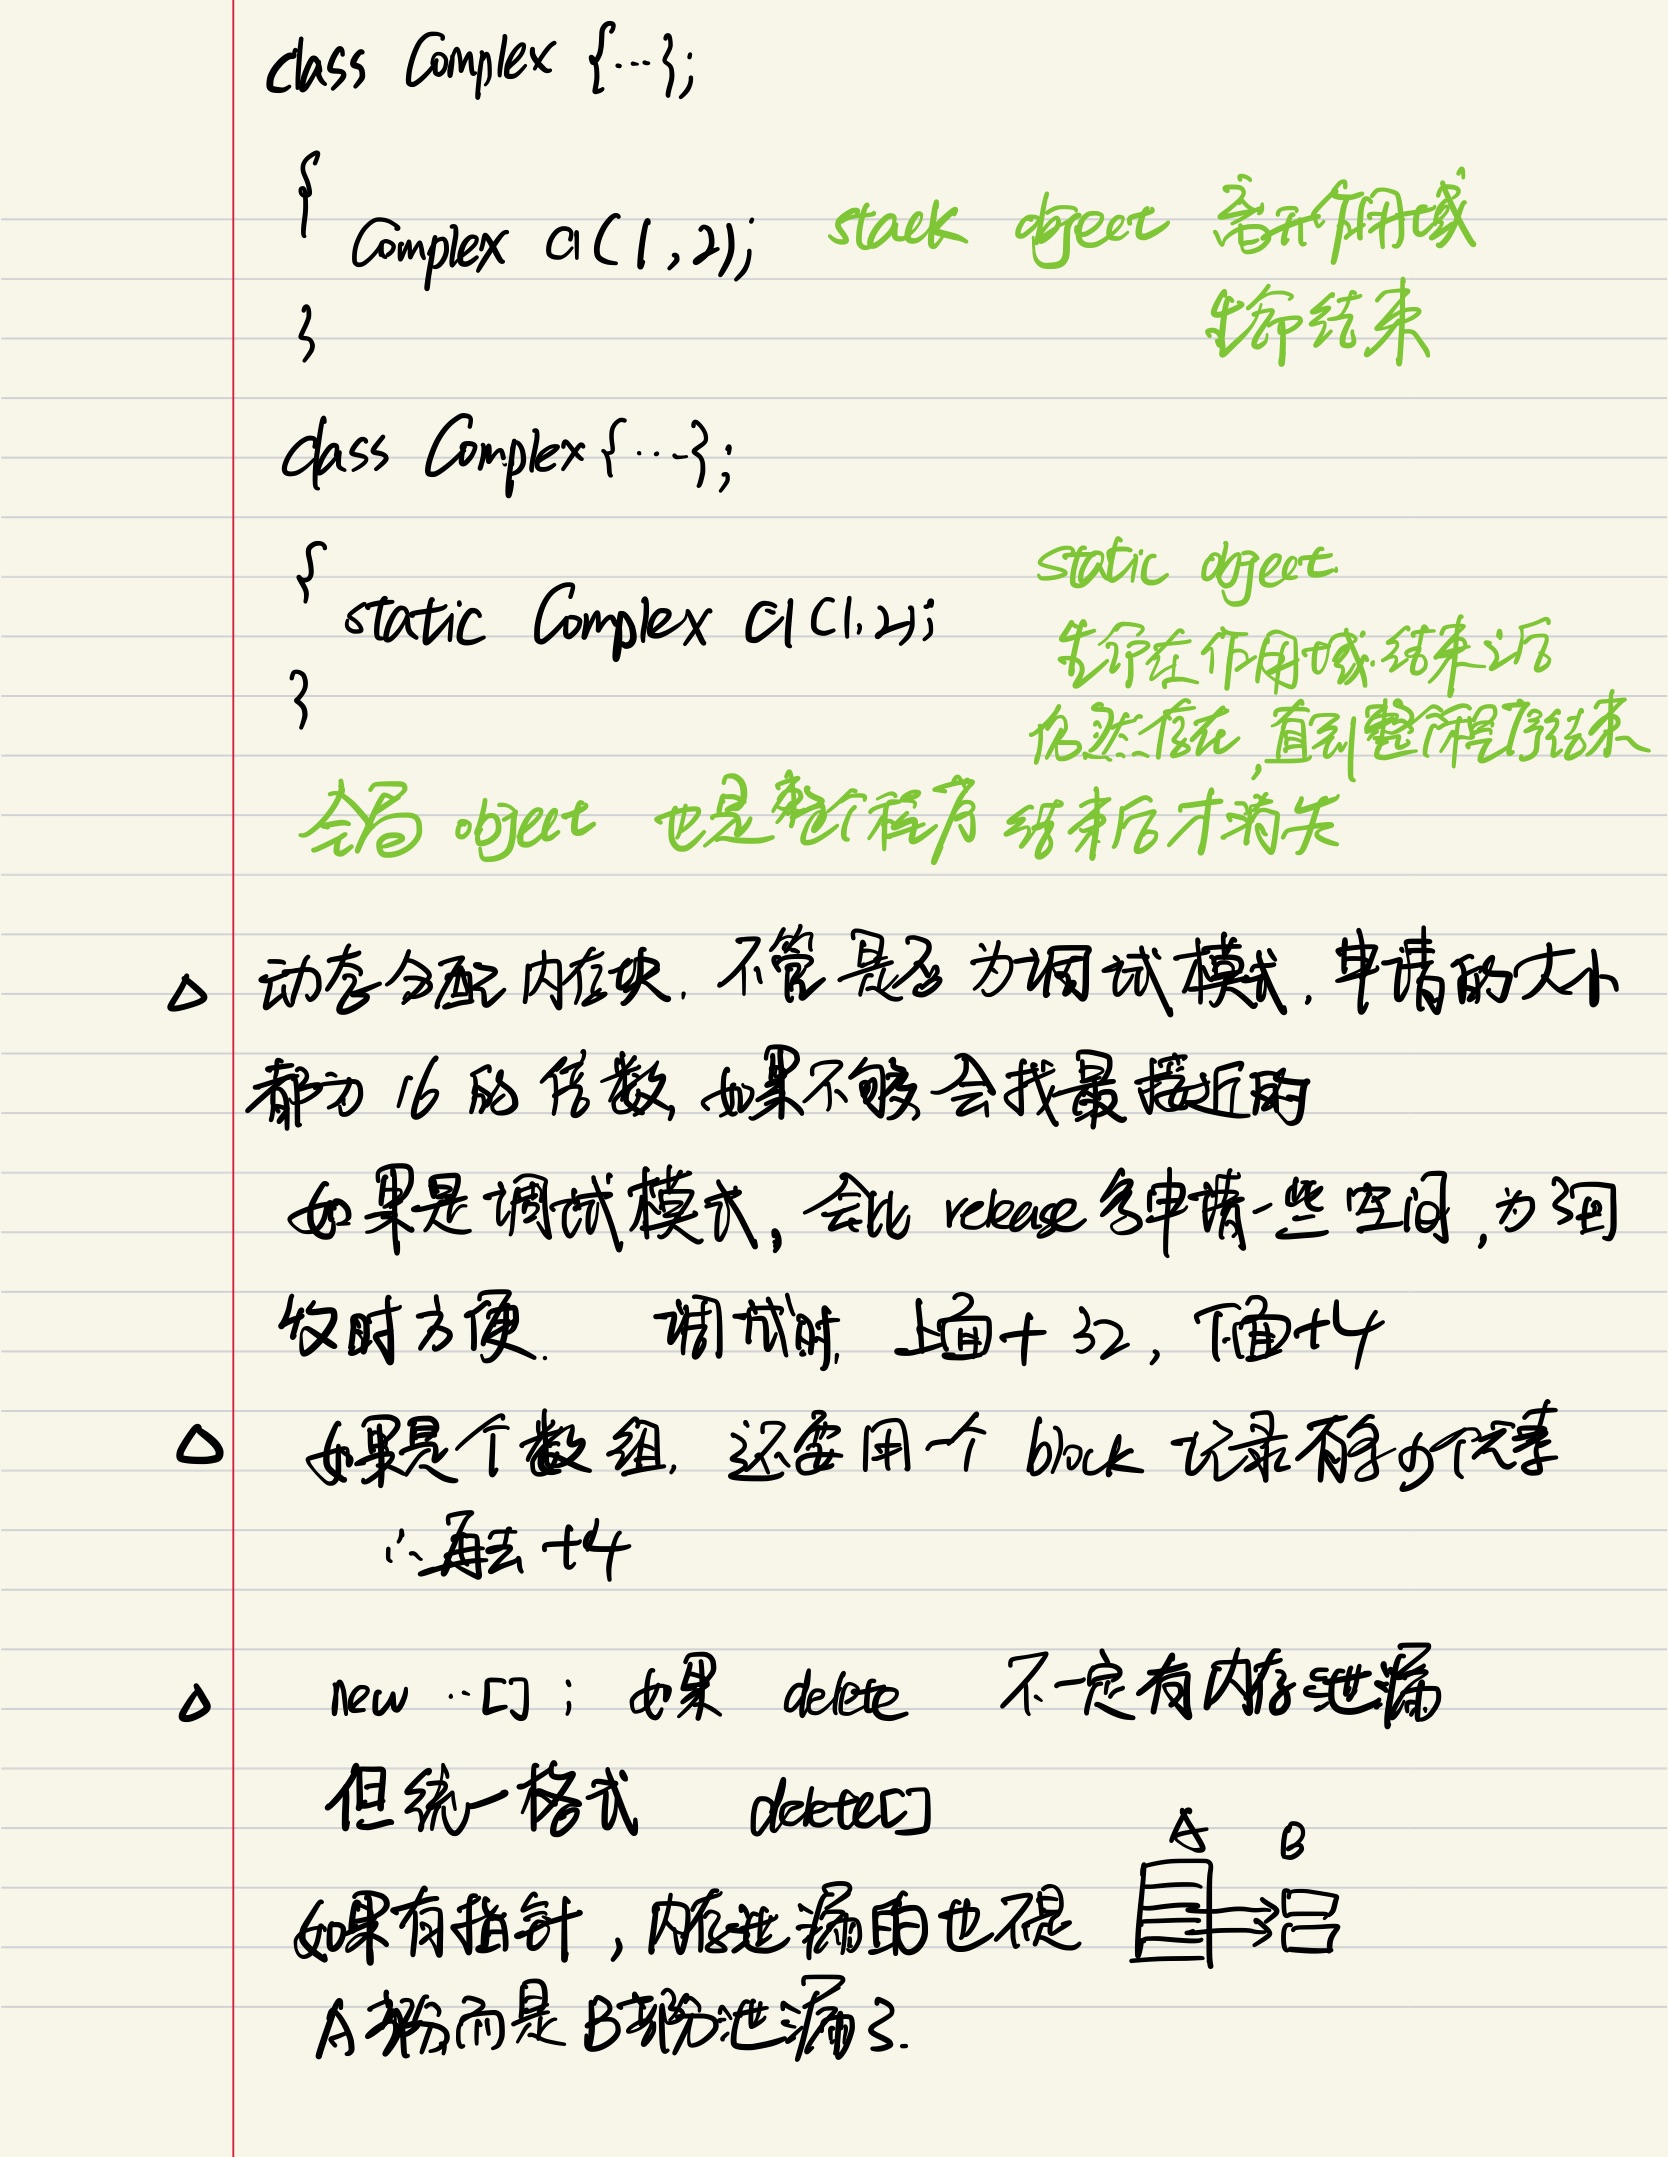 class Complex {...};
{
Complex c1(1,2); stack object 离开作用域
生命结束
}
class Complex{...};
{
static object
static Complex c1(1,2);
生命在作用域结束之后
}
仍然存在,直到整个程序结束
全局 object 也是整个程序结束后才消失
△ 动态分配内存块,不管是否为调试模式,申请的大小
都为16的倍数,如果不够会找最接近的
如果是调试模式,会比release多申请一些空间,为了回
收时方便. 调试时,上面+32,下面+4
△ 如果是个数组,还要用个block记录有多少个元素
∴再去+4
△ new ..[]; 如果 delete 不一定有内存泄漏
但统一格式 delete[]
A B
如果有指针,内存泄漏的也不是
A部份而是B部份泄漏了.